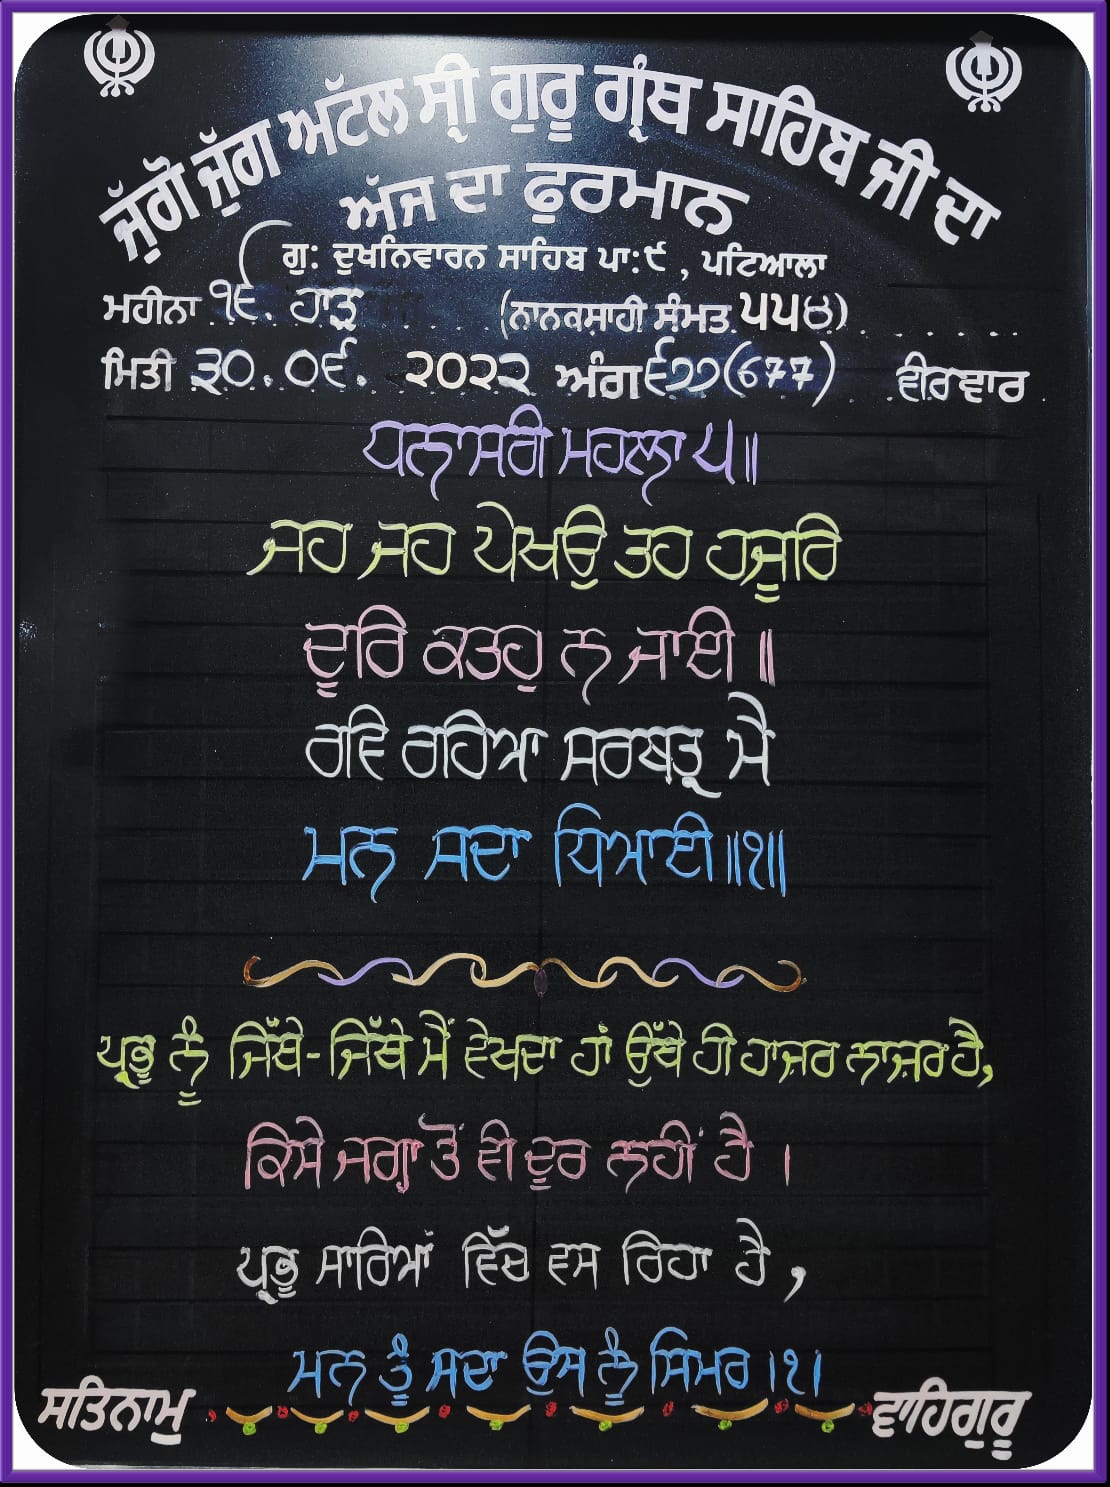 ਜੁੱਗੋ ਜੁੱਗ ਅਟੱਲ ਸ੍ਰੀ ਗੁਰੂ ਗ੍ਰੰਥ ਸਾਹਿਬ ਜੀ ਦਾ
ਅੱਜ ਦਾ ਫੁਰਮਾਨ
ਗੁ: ਦੁਖਨਿਵਾਰਨ ਸਾਹਿਬ ਪਾ:੯, ਪਟਿਆਲਾ
ਮਹੀਨਾ ੧੬. ਹਾੜ (ਨਾਨਕਸ਼ਾਹੀ ਸੰਮਤ ੫੫੪)
ਮਿਤੀ ੩੦.੦੬. ੨੦੨੨ ਅੰਗ ੬੭੭(677) ਵੀਰਵਾਰ
ਧਨਾਸਰੀ ਮਹਲਾ ੫॥
ਜਹ ਜਹ ਪੇਖਉ ਤਹ ਹਜੂਰਿ
ਦੂਰਿ ਕਤਹੁ ਨ ਜਾਈ ॥
ਰਵਿ ਰਹਿਆ ਸਰਬਤ੍ਰ ਮੈ
ਮਨ ਸਦਾ ਧਿਆਈ॥੧॥
ਪ੍ਰਭੂ ਨੂੰ ਜਿੱਥੇ-ਜਿੱਥੇ ਮੈਂ ਵੇਖਦਾ ਹਾਂ ਉੱਥੇ ਹੀ ਹਾਜ਼ਰ ਨਾਜ਼ਰ ਹੈ,
ਕਿਸੇ ਜਗ੍ਹਾ ਤੋਂ ਵੀ ਦੂਰ ਨਹੀਂ ਹੈ ।
ਪ੍ਰਭੂ ਸਾਰਿਆਂ ਵਿੱਚ ਵਸ ਰਿਹਾ ਹੈ ,
ਮਨ ਤੂੰ ਸਦਾ ਉਸ ਨੂੰ ਸਿਮਰ ।੧।
ਸਤਿਨਾਮੁ ਵਾਹਿਗੁਰੂ